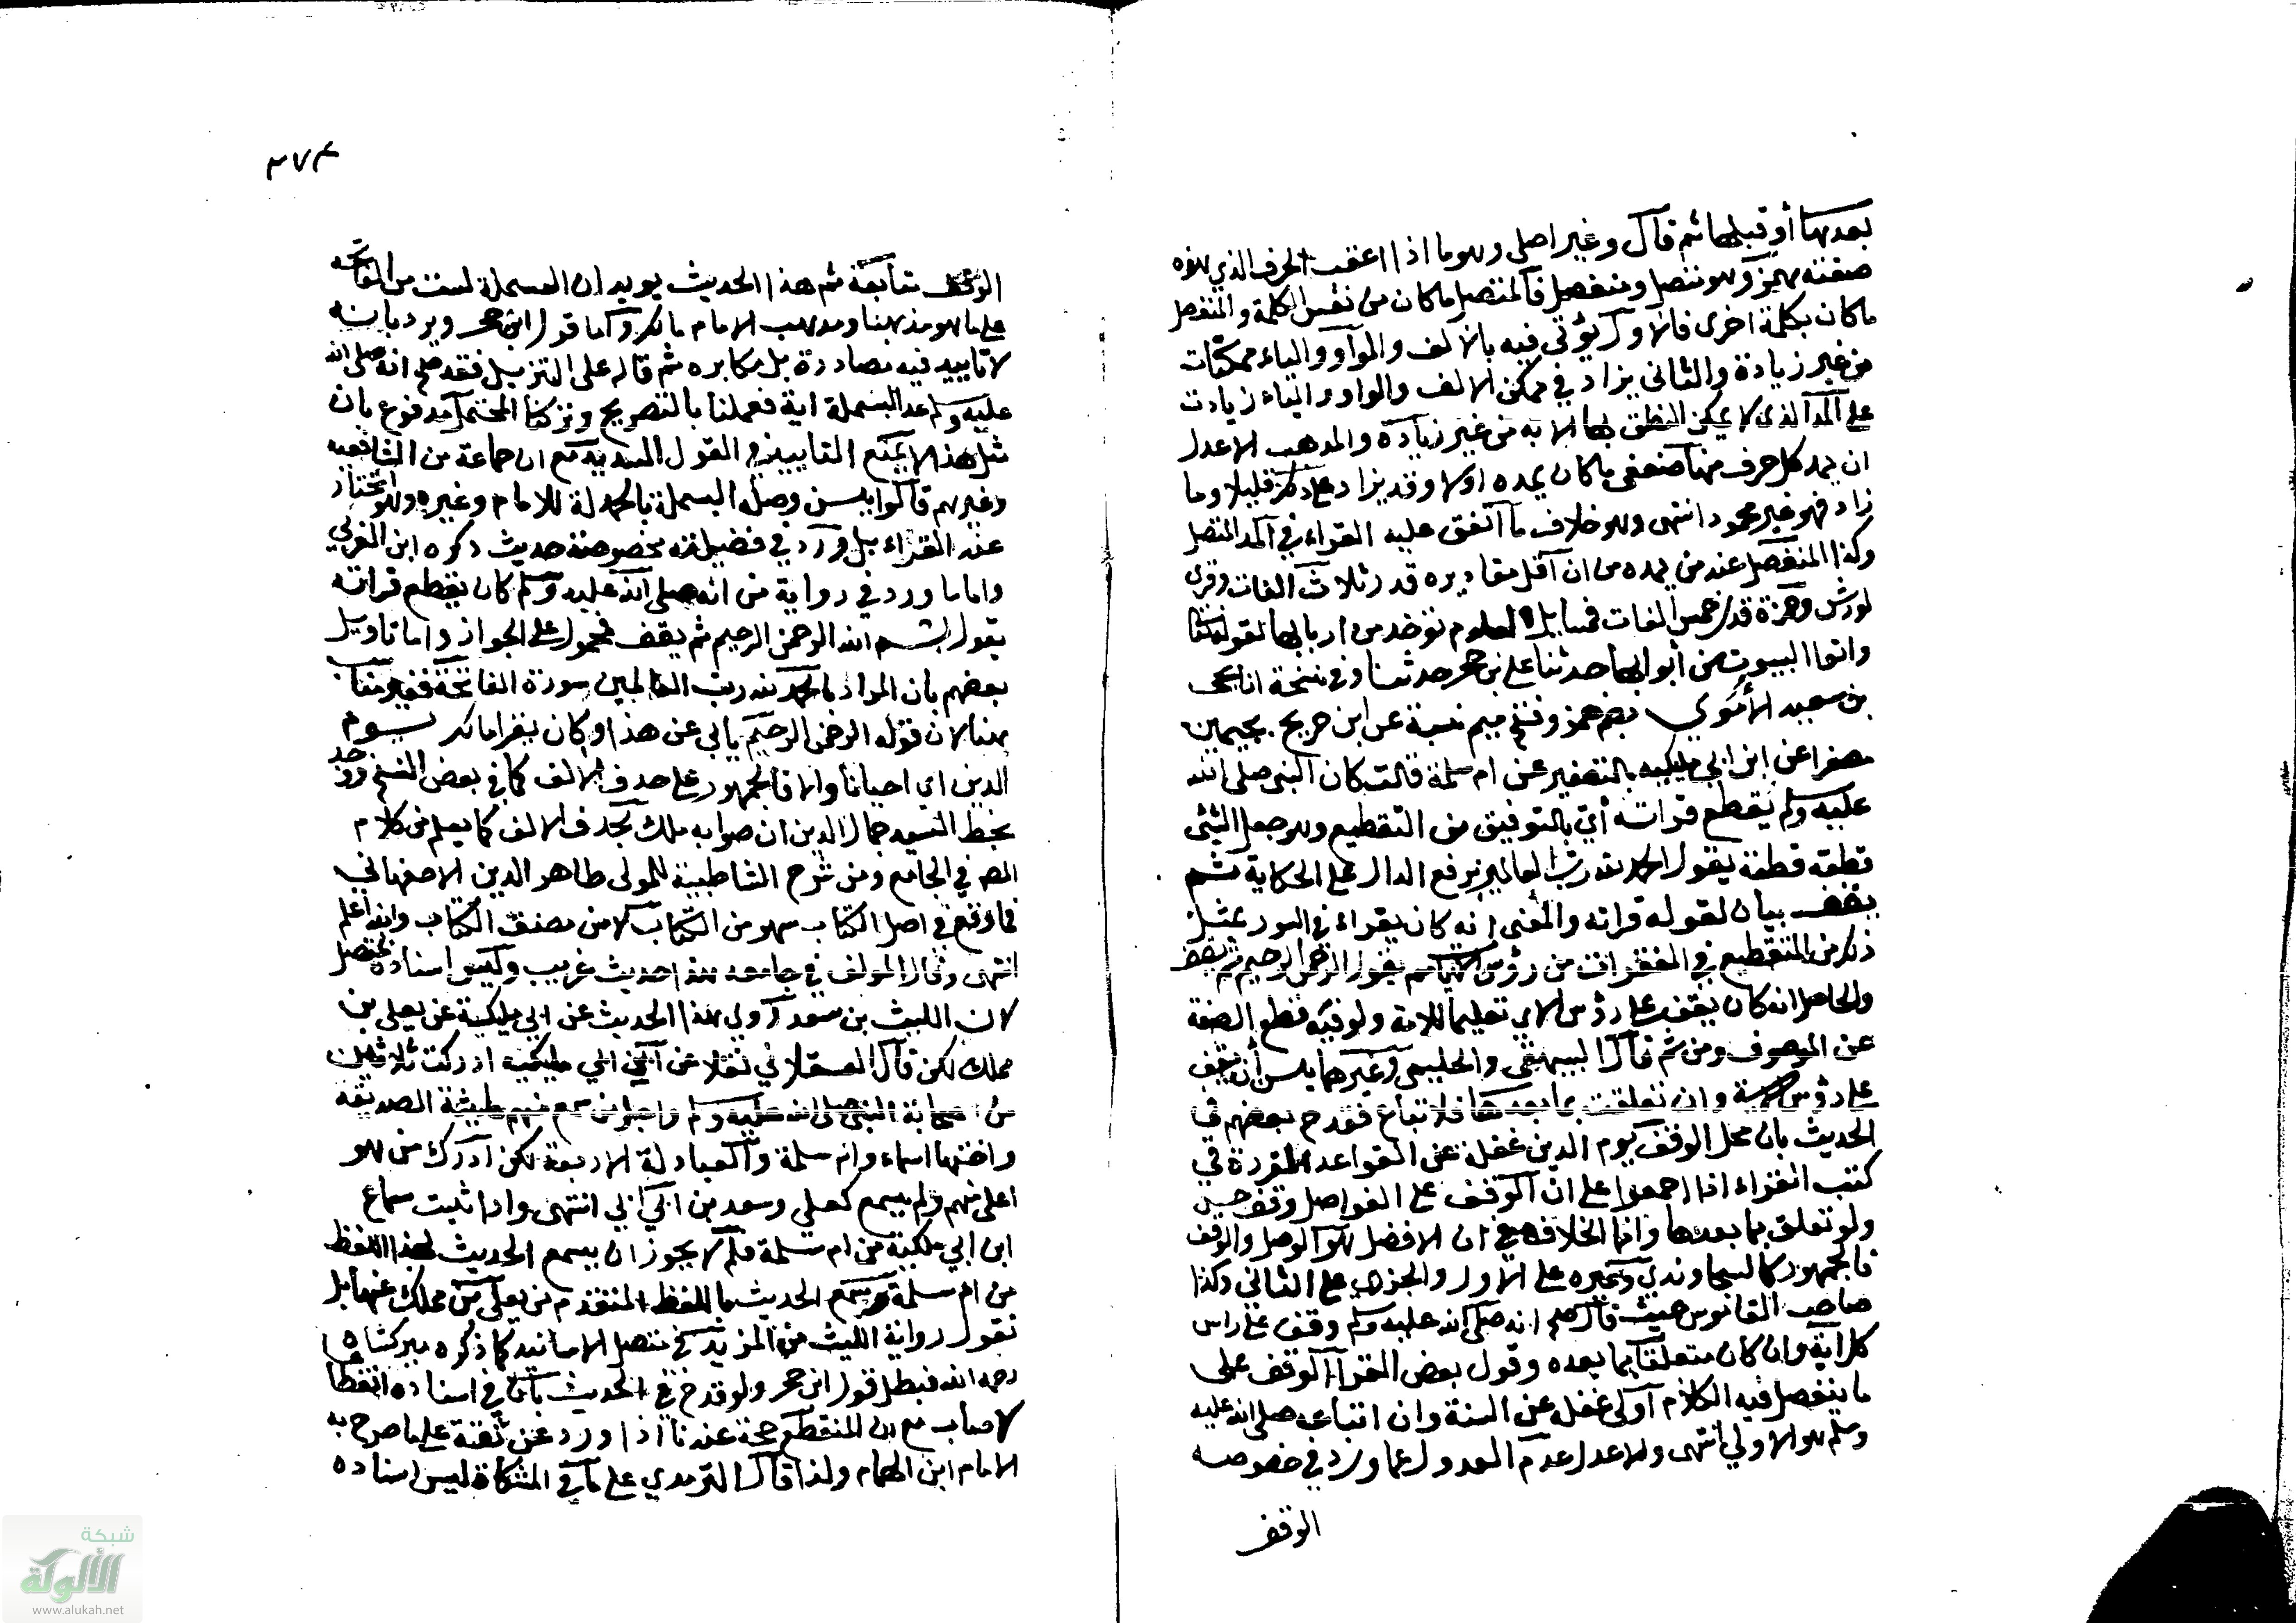 بعدها أو قبلها ثم قال وغير اصلي وهو ما اذا اعقب الحرف الذي هذه
صفته همز وهو متصل ومنفصل فالمتصل ما كان من نفس الكلمة والمنفصل
ما كان بكلمة اخرى فالاول يؤتى فيه بالالف والواو والياء ممكنات
من غير زيادة والثاني يزاد في تمكن الالف والواو والياء زيادت
على المد الذي لا يمكن النطق بها الا به من غير زيادة والمذهب الاعدل
ان يمد كل حرف منها ضعفي ما كان يمده اولا وقد يزاد على ذلك قليلا وما
زاد فهو غير محمود انتهى وهو خلاف ما اتفق عليه القراء في المد المتصل
وكذا المنفصل عند من يمده من ان اقل مقاديره قدر ثلاث الفات وقرئ
لورش وحمزة قدر خمس الفات فمسايل العلوم توخذ من اربابها لقوله تعالى
واتوا البيوت من أبوابها حدثنا علي بن حجر حدثنا وفي نسخة انا يحيى
بن سعيد الأموي بضم همز وفتح ميم نسبة عن ابن جريج بجيمين
مصغرا عن ابن ابي مليكة بالتصغير عن ام سلمة قالت كان النبي صلى الله
عليه وسلم يقطع قراته أي بالتوفيق من التقطيع وهو جعل الشئ
قطعة قطعة يقول الحمد لله رب العالمين برفع الدال على الحكاية ثم
يقف بيان لقوله قراته والمعنى انه كان يقراء في السور عثل
ذلك من التقطيع في الفقرات من رؤس الايات ثم يقول الرحمن الرحيم ثم يقف
والحاصل انه كان يقف على رؤس الاي تعليما للامة ولو فيه قطع الصفة
عن الموصوف ومن ثم قال البيهقي والحليمي وغيرهما يسن أن يقف
على رؤس الاية وان تعلقت بما بعدها فلاتباع فقدح بعضهم في
الحديث بان محل الوقف يوم الدين غفلة عن القواعد المقررة في
كتب القراء اذا اجمعوا على ان الوقف على الفواصل وقف حسن
ولو تعلق بما بعدها وانما الخلاف في ان الافضل هو الوصل والوقف
فالجمهور كالسجاوندي وغيره على الاول والجزري على الثاني وكذا
صاحب القاموس حيث قال صح انه صلى الله عليه وسلم وقف على راس
كل اية وان كان متعلقا بما بعده وقول بعض القرآ الوقف على
ما ينفصل فيه الكلام اولى غفلة عن السنة وان اتباعه صلى الله عليه
وسلم هو الاولى انتهى والاعدل عدم العدول عما ورد في خصوصه
الوقف
٣٧٤
الوقف متابعة ثم هذا الحديث يويد ان البسملة ليست من الفاتحة
على ما هو مذهبنا ومذهب الامام مالك واما قول ابن حجر ويرد بانه
لا تاييد فيه مصادرة بل مكابره ثم قاله على التنزيل فقد صح انه صلى الله
عليه وسلم عد البسملة اية فعملنا بالتصريح وتركنا المحتمل مدفوع بان
مثل هذا لا يمنع التاييد في القول السديد مع ان جماعة من الشافعية
وغيرهم قالوا يسن وصل البسملة بالحمدلة للامام وغيره وهو المختار
عند القراء بل ورد في فضيلته بخصوصه حديث ذكره ابن العربي
واما ما ورد في رواية من انه صلى الله عليه وسلم كان يقطع قراته
يقول بسم الله الرحمن الرحيم ثم يقف فمحمول على الجواز واما تاويل
بعضهم بان المواد بالحمد لله رب العالمين سورة الفاتحة فغير مناسب
هنا لان قوله الرحمن الرحيم يابى عن هذا وكان يقرا مالك يوم
الدين اي احيانا والا فالجمهور على حذف الالف كما في بعض النسخ ووجد
بخط السيد جمال الدين ان صوابه ملك بحذف الالف كما يعلم من كلام
المص في الجامع ومن شرح الشاطبية للمولى طاهر الدين الاصفهاني
فما وقع في اصل الكتاب سهو من الكتاب لا من مصنف الكتاب والله اعلم
انتهى وقال المولف في جامعه هذا حديث غريب وليس اسناده بمتصل
لان الليث بن سعد روى هذا الحديث عن ابي مليكة عن يعلى بن
مملك لكن قال العسقلاني نقلا عن ابن ابي مليكة ادركت ثلاثين
من اصحابة النبي صلى الله عليه وسلم واجل من سمع منهم عايشة الصديقة
واختها اسماء وام سلمة والعبادلة الاربعة لكن ادرك من هو
اعلى منهم ولم يسمع كعلي وسعد بن ابي انتهى واذا ثبت سماع
ابن ابي مليكة من ام سلمة فلم لا يجوز ان يسمع الحديث بهذا اللفظ
من ام سلمة وسمع الحديث باللفظ المتقدم من يعلى بن مملك عنها بل
نقول رواية الليث من المزيد في متصل الاسانيد كما ذكره ميركشاه
رحمه الله فبطل قول ابن حجر ولو قدح في الحديث بان في اسناده انقطاعا
لاصاب مع ان المنقطع حجة عندنا اذا ورد عن ثقة على ما صرح به
الامام ابن الهمام ولذا قال الترمذي على ما في المشكاة ليس اسناده
شبكة
الألوكة
www.alukah.net